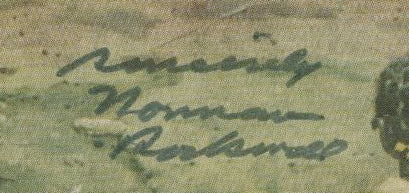 Sincerely
Norman
Rockwell